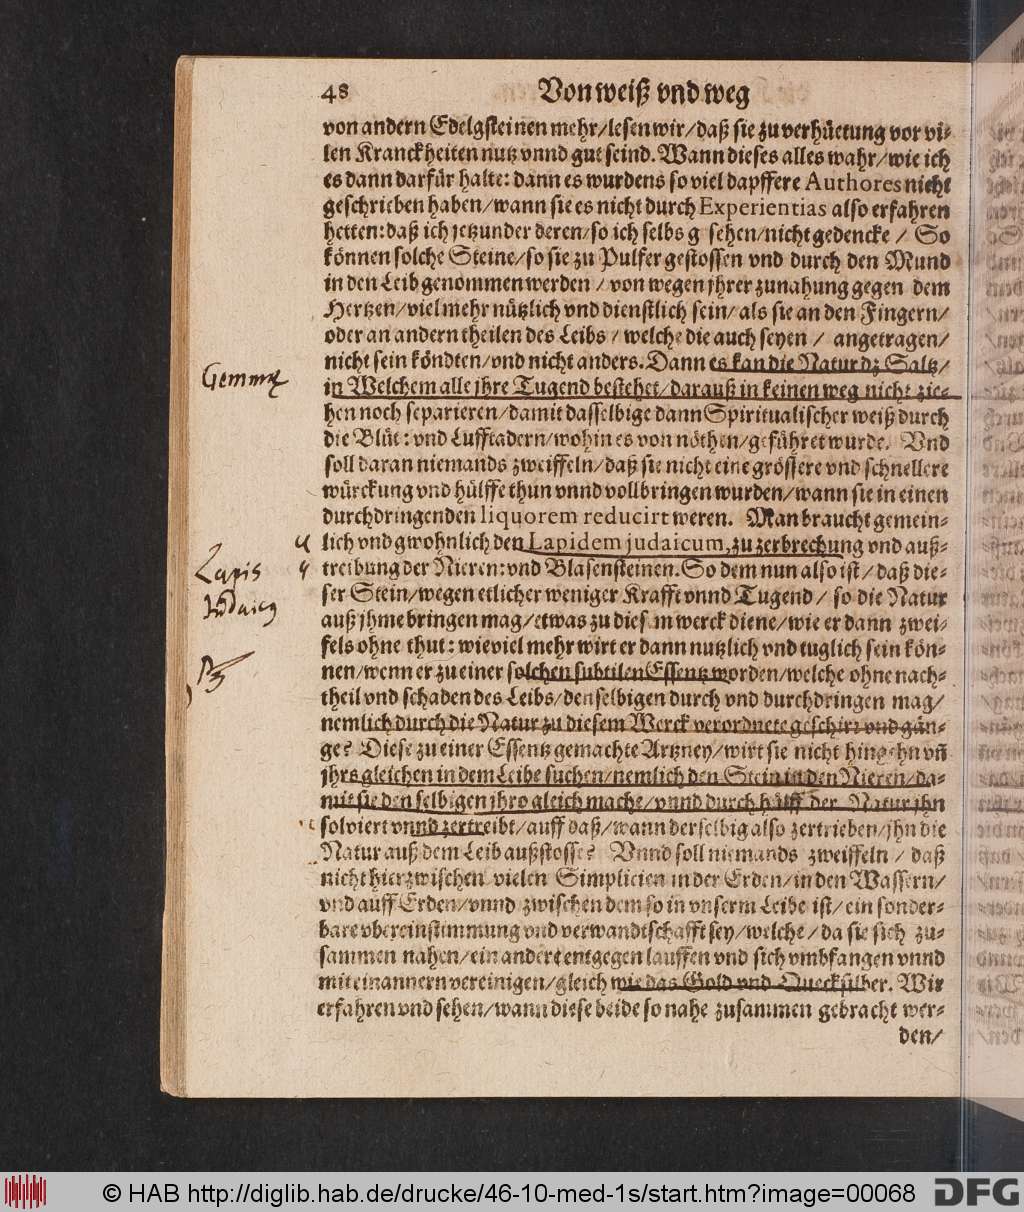 48 Von weiß vnd weg
von andern Edelgsteinen mehr/lesen wir/daß sie zu verhüetung vor vi-
len Kranckheiten nutz vnnd gut seind. Wann dieses alles wahr/wie ich
es dann darfür halte: dann es wurdens so viel dapffere Authores nicht
geschrieben haben/wann sie es nicht durch Experientias also erfahren
hetten: daß ich jetzunder deren/so ich selbs g sehen/nicht gedencke / So
können solche Steine/so sie zu Pulfer gestossen vnd durch den Mund
in den Leib genommen werden / von wegen jhrer zunahung gegen dem
Hertzen/viel mehr nützlich vnd dienstlich sein/als sie an den Fingern/
oder an andern theilen des Leibs / welche die auch seyen / angetragen/
nicht sein köndten/vnd nicht anders. Dann es kan die Natur dz Saltz/
Gemmę
in Welchem alle jhre Tugend bestehet/darauß in keinen weg nicht zie-
hen noch separieren/damit dasselbige dann Spiritualischer weiß durch
die Blüt: vnd Lufftadern/wohin es von nöthen/geführet wurde. Vnd
soll daran niemands zweiffeln/daß sie nicht eine grössere vnd schnellere
würckung vnd hülffe thun vnnd vollbringen wurden/wann sie in einen
durchdringenden liquorem reducirt weren. Man braucht gemein-
lich vnd gwohnlich den Lapidem judaicum, zu zerbrechung vnd auß-
Lapis
treibung der Nieren: vnd Blasensteinen. So dem nun also ist/daß die-
ser Stein/wegen etlicher weniger Krafft vnnd Tugend / so die Natur
Iudaicq
auß jhme bringen mag/etwas zu dies m werck diene/wie er dann zwei-
fels ohne thut: wieviel mehr wirt er dann nutzlich vnd tuglich sein kön-
nen/wenn er zu einer solchen subtilen Essentz worden/welche ohne nach-
theil vnd schaden des Leibs/denselbigen durch vnd durchdringen mag/
nemlich durch die Natur zu diesem Werck verordnete geschirr vnd gän-
ge? Diese zu einer Essentz gemachte Artzney/wirt sie nicht hingehn vñ
jhrs gleichen in dem Leibe suchen/nemlich den Stein in den Nieren/da-
mit sie den selbigen jhro gleich mache/vnnd durch hülff der Natur jhn
solviert vnnd zertreibt/auff daß/wann derselbig also zertrieben/jhn die
Natur auß dem Leib außstosse? Vnnd soll niemands zweiffeln / daß
nicht hierzwischen vielen Simplicien in der Erden/in den Wassern/
vnd auff Erden/vnnd zwischen dem so in vnserm Leibe ist/ein sonder-
bare vbereinstimmung vnd verwandtschafft sey/welche/da sie sich zu-
sammen nahen/ein andere entgegen lauffen vnd sich vmbfangen vnnd
mit einannern vereinigen/gleich wie das Gold vnd Quecksilber. Wir
erfahren vnd sehen/wann diese beide so nahe zusammen gebracht wer-
den/
© HAB http://diglib.hab.de/drucke/46-10-med-1s/start.htm?image=00068 DFG